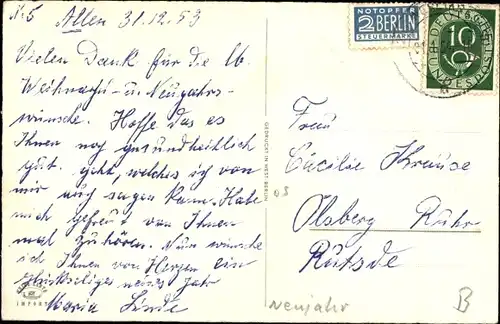 Allen 31.12.53
Vielen Dank für die lb.
Weihnachts- u. Neujahrs-
wünsche. Hoffe das es
Ihnen noch gesundheitlich
gut geht, welches ich von
mir auch sagen kann. Habe
mich gefreut von Ihnen
mal zu hören. Nun wünsche
ich Ihnen von Herzen ein
glückseliges neues Jahr
Maria Linde
NOTOPFER
2 BERLIN
STEUERMARKE
DEUTSCHE
BUNDESPOST
10
Frau
Cäcilie Krause
Olsberg Ruhr
Neujahr
B